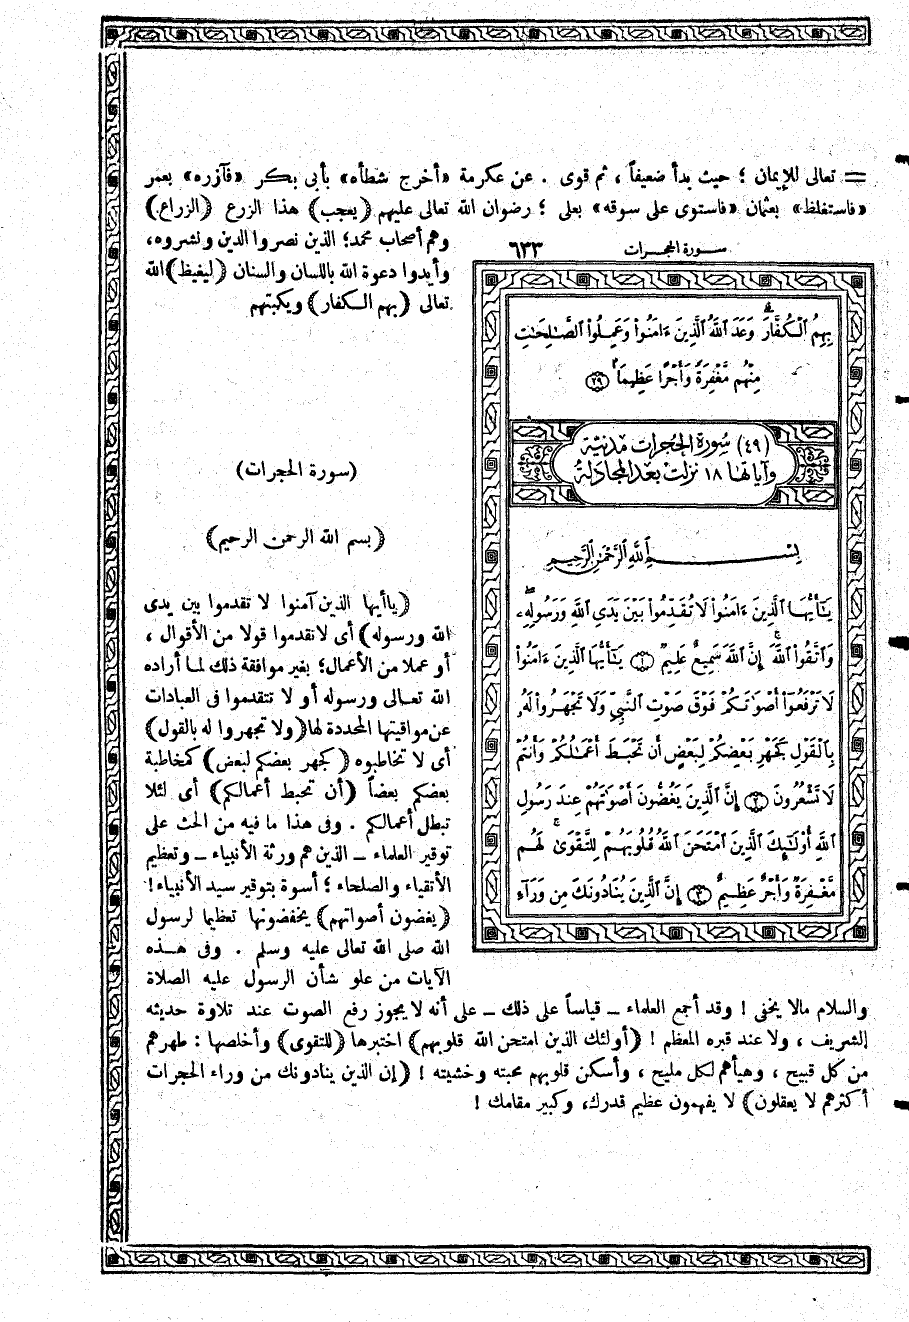 = تعالى للإيمان ؛ حيث بدأ ضعيفاً ، ثم قوى . عن عكرمة «أخرج شطأه» بأبى بكر «فآزره» بعمر
«فاستغلظ» بعثمان «فاستوى على سوقه» بعلى ؛ رضوان الله تعالى عليهم (يعجب) هذا الزرع (الزراع)
وهم أصحاب محمد؛ الذين نصروا الدين ونشروه،
وأيدوا دعوة الله باللسان والسنان (ليغيظ) الله
تعالى (بهم الكفار) ويكبتهم
سورة الحجرات ٦٣٣
بِهِمُ ٱلْكُفَّارَ ۗ وَعَدَ ٱللَّهُ ٱلَّذِينَ ءَامَنُوا۟ وَعَمِلُوا۟ ٱلصَّـٰلِحَـٰتِ
مِنْهُم مَّغْفِرَةً وَأَجْرًا عَظِيمًۢا ﴿٢٩﴾
(٤٩) سُورَة الحُجُرات مَدنيَّة
وَآياتها ١٨ نزلتْ بَعْد المجادلة
بِسْمِ ٱللَّهِ ٱلرَّحْمَٰنِ ٱلرَّحِيمِ
يَـٰٓأَيُّهَا ٱلَّذِينَ ءَامَنُوا۟ لَا تُقَدِّمُوا۟ بَيْنَ يَدَىِ ٱللَّهِ وَرَسُولِهِۦ ۖ
وَٱتَّقُوا۟ ٱللَّهَ ۚ إِنَّ ٱللَّهَ سَمِيعٌ عَلِيمٌ ﴿١﴾ يَـٰٓأَيُّهَا ٱلَّذِينَ ءَامَنُوا۟
لَا تَرْفَعُوٓا۟ أَصْوَٰتَكُمْ فَوْقَ صَوْتِ ٱلنَّبِىِّ وَلَا تَجْهَرُوا۟ لَهُۥ
بِٱلْقَوْلِ كَجَهْرِ بَعْضِكُمْ لِبَعْضٍ أَن تَحْبَطَ أَعْمَـٰلُكُمْ وَأَنتُمْ
لَا تَشْعُرُونَ ﴿٢﴾ إِنَّ ٱلَّذِينَ يَغُضُّونَ أَصْوَٰتَهُمْ عِندَ رَسُولِ
ٱللَّهِ أُو۟لَـٰٓئِكَ ٱلَّذِينَ ٱمْتَحَنَ ٱللَّهُ قُلُوبَهُمْ لِلتَّقْوَىٰ ۚ لَهُم
مَّغْفِرَةٌ وَأَجْرٌ عَظِيمٌ ﴿٣﴾ إِنَّ ٱلَّذِينَ يُنَادُونَكَ مِن وَرَآءِ
(سورة الحجرات)
(بسم الله الرحمن الرحيم)
(ياأيها الذين آمنوا لا تقدموا بين يدى
الله ورسوله) أى لاتقدموا قولا من الأقوال ،
أو عملا من الأعمال؛ بغير موافقة ذلك لما أراده
الله تعالى ورسوله أو لا تتقدموا فى العبادات
عن مواقيتها المحددة لها (ولا تجهروا له بالقول)
أى لا تخاطبوه (كجهر بعضكم لبعض) كمخاطبة
بعضكم بعضاً (أن تحبط أعمالكم) أى لئلا
تبطل أعمالكم . وفى هذا ما فيه من الحث على
توقير العلماء ــ الذين هم ورثة الأنبياء ــ وتعظيم
الأتقياء والصلحاء ؛ أسوة بتوقير سيد الأنبياء!
(يغضون أصواتهم) يخفضونها تعظيما لرسول
الله صلى الله تعالى عليه وسلم . وفى هذه
الآيات من علو شأن الرسول عليه الصلاة
والسلام مالا يخفى ! وقد أجمع العلماء ــ قياساً على ذلك ــ على أنه لا يجوز رفع الصوت عند تلاوة حديثه
الشريف ، ولا عند قبره المعظم ! (أولئك الذين امتحن الله قلوبهم) اختبرها (للتقوى) وأخلصها : طهرهم
من كل قبيح ، وهيأهم لكل مليح ، وأسكن قلوبهم محبته وخشيته ! (إن الذين ينادونك من وراء الحجرات
أكثرهم لا يعقلون) لا يفهمون عظيم قدرك، وكبير مقامك !